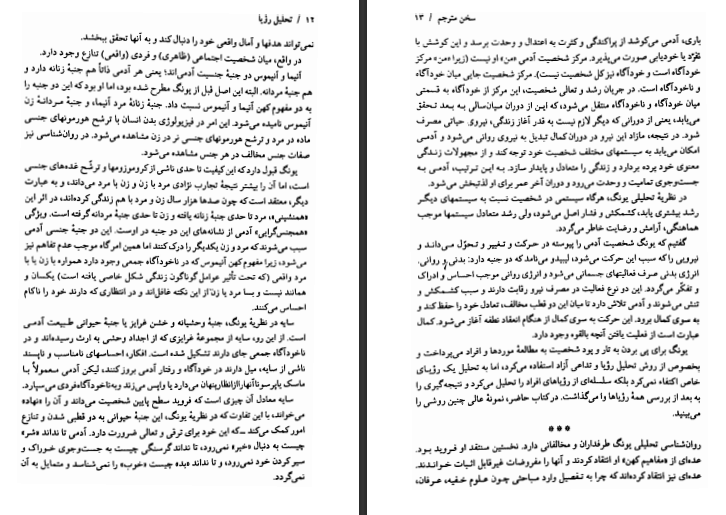 ۱۲ / تحلیل رؤیا
نمی‌تواند هدفها و آمال واقعی خود را دنبال کند و به آنها تحقق ببخشد.
در واقع، میان شخصیت اجتماعی (ظاهری) و فردی (واقعی) تنازع وجود دارد.
آنیما و آنیموس دو جنبهٔ جنسیت آدمی‌اند؛ یعنی هر آدمی ذاتاً هم جنبهٔ زنانه دارد و
هم جنبهٔ مردانه. البته این اصل قبل از یونگ مطرح شده بود، اما او بود که این دو جنبه را
به دو مفهوم کهن آنیما و آنیموس نسبت داد. جنبهٔ زنانهٔ مرد آنیما، و جنبهٔ مردانهٔ زن
آنیموس نامیده می‌شود. این امر در فیزیولوژی بدن انسان با ترشح هورمونهای جنسی
ماده در مرد و ترشح هورمونهای جنسی نر در زن مشاهده می‌شود. در روان‌شناسی نیز
صفات جنس مخالف در هر جنس مشاهده می‌شود.
یونگ قبول دارد که این کیفیت تا حدی ناشی از کروموزومها و ترشّح غده‌های جنسی
است، اما آن را بیشتر نتیجهٔ تجارب نژادی مرد با زن و زن با مرد می‌داند، و به عبارت
دیگر، معتقد است که چون صدها هزار سال زن و مرد با هم زندگی کرده‌اند، در اثر این
«همنشینی»، مرد تا حدی جنبهٔ زنانه یافته و زن تا حدی جنبهٔ مردانه گرفته است. ویژگی
«همجنس‌گرایی» آدمی از نشانه‌های این دو جنبه در اوست. این دو جنبهٔ جنسی آدمی
سبب می‌شوند که مرد و زن یکدیگر را درک کنند اما همین امر گاه موجب عدم تفاهم نیز
می‌شود، زیرا مفهوم کهن آنیموس که در ناخودآگاه جمعی وجود دارد همواره با زن یا با
مرد واقعی (که تحت تأثیر عوامل گوناگون زندگی شکل خاصی یافته است) یکسان و
همانند نیست و بسا مرد یا زن از این نکته غافل‌اند و در انتظاری که دارند خود را ناکام
احساس می‌کنند.
سایه در نظریهٔ یونگ، جنبهٔ وحشیانه و خشن غرایز یا جنبهٔ حیوانی طبیعت آدمی
است. از این رو، سایه از مجموعهٔ غرایزی که از اجداد وحشی به ارث رسیده‌اند و در
ناخودآگاه جمعی جای دارند تشکیل شده است. افکار، احساسهای نامناسب و ناپسند
ناشی از سایه، میل دارند در خودآگاه و رفتار آدمی بروز کنند، لیکن آدمی معمولاً با
ماسک یا پرسونا آنها را از انظار پنهان می‌دارد یا واپس می‌زند و به ناخودآگاه فردی می‌سپارد.
سایه معادل آن چیزی است که فروید سطح پایین شخصیت می‌داند و آن را «نهاد»
می‌خواند، با این تفاوت که در نظریهٔ یونگ، این جنبهٔ حیوانی به دو قطبی شدن و تنازع
امور کمک می‌کند ـ که این خود برای ترقی و تعالی ضرورت دارد. آدمی تا نداند «شر»
چیست به دنبال «خیر» نمی‌رود، تا نداند گرسنگی چیست به جست‌وجوی خوراک و
سیر کردن خود نمی‌رود، و تا نداند «بد» چیست «خوب» را نمی‌شناسد و متمایل به آن
نمی‌گردد.
سخن مترجم / ۱۳
باری، آدمی می‌کوشد از پراکندگی و کثرت به اعتدال و وحدت برسد و این کوشش با
تفرّد یا خودیابی صورت می‌پذیرد. مرکز شخصیت آدمی «من» او نیست (زیرا «من» مرکز
خودآگاه است و خودآگاه نیز کل شخصیت نیست). مرکز شخصیت جایی میان خودآگاه
و ناخودآگاه است. در جریان رشد و تعالی شخصیت، این مرکز از خودآگاه به قسمتی
میان خودآگاه و ناخودآگاه منتقل می‌شود، که این از دوران میان‌سالی به بعد تحقق
می‌یابد، یعنی از دورانی که دیگر لازم نیست به قدر آغاز زندگی، نیروی حیاتی مصرف
شود. در نتیجه، مازاد این نیرو در دوران کمال تبدیل به نیروی روانی می‌شود و آدمی
امکان می‌یابد به سیستمهای مختلف شخصیت خود توجه کند و از مجهولات زندگی
معنوی خود پرده بردارد و زندگی را متعادل و پایدار سازد. به این ترتیب، آدمی به
جست‌وجوی تمامیت و وحدت می‌رود و دوران آخر عمر برای او لذتبخش می‌شود.
در نظریهٔ تحلیلی یونگ، هرگاه سیستمی در شخصیت نسبت به سیستمهای دیگر
رشد بیشتری یابد، کشمکش و فشار اصل می‌شود، ولی رشد متعادل سیستمها موجب
هماهنگی، آرامش و رضایت خاطر می‌گردد.
گفتیم که یونگ شخصیت آدمی را پیوسته در حرکت و تغییر و تحوّل می‌داند و
نیرویی را که سبب این حرکت می‌شود، لیبیدو می‌نامد که دو جنبه دارد: بدنی و روانی.
انرژی بدنی صرف فعالیتهای جسمانی می‌شود و انرژی روانی موجب احساس و ادراک
و تفکّر می‌گردد. این دو نوع فعالیت در مصرف نیرو رقابت دارند و سبب کشمکش و
تنش می‌شوند و آدمی تلاش دارد تا میان این دو قطب مخالف، تعادل خود را حفظ کند و
به سوی کمال برود. این حرکت به سوی کمال از هنگام انعقاد نطفه آغاز می‌شود. کمال
عبارت است از فعلیت یافتن آنچه بالقوه وجود دارد.
یونگ برای پی بردن به تار و پود شخصیت به مطالعهٔ موردها و افراد می‌پرداخت و
بخصوص از روش تحلیل رؤیا و تداعی آزاد استفاده می‌کرد، اما به تحلیل یک رؤیای
خاص اکتفاء نمی‌کرد بلکه سلسله‌ای از رؤیاهای افراد را تحلیل می‌کرد و نتیجه‌گیری را
به بعد از بررسی همهٔ رؤیاها وا می‌گذاشت. در کتاب حاضر، نمونهٔ عالی چنین روشی را
می‌بینید.
* * *
روان‌شناسی تحلیلی یونگ طرفداران و مخالفانی دارد. نخستین منتقد او فروید بود.
عده‌ای از «مفاهیم کهن» او انتقاد کردند و آنها را مفروضات غیرقابل اثبات خواندند.
عده‌ای نیز انتقاد کرده‌اند که چرا به تفصیل وارد مباحثی چون علوم خفیه، عرفان،